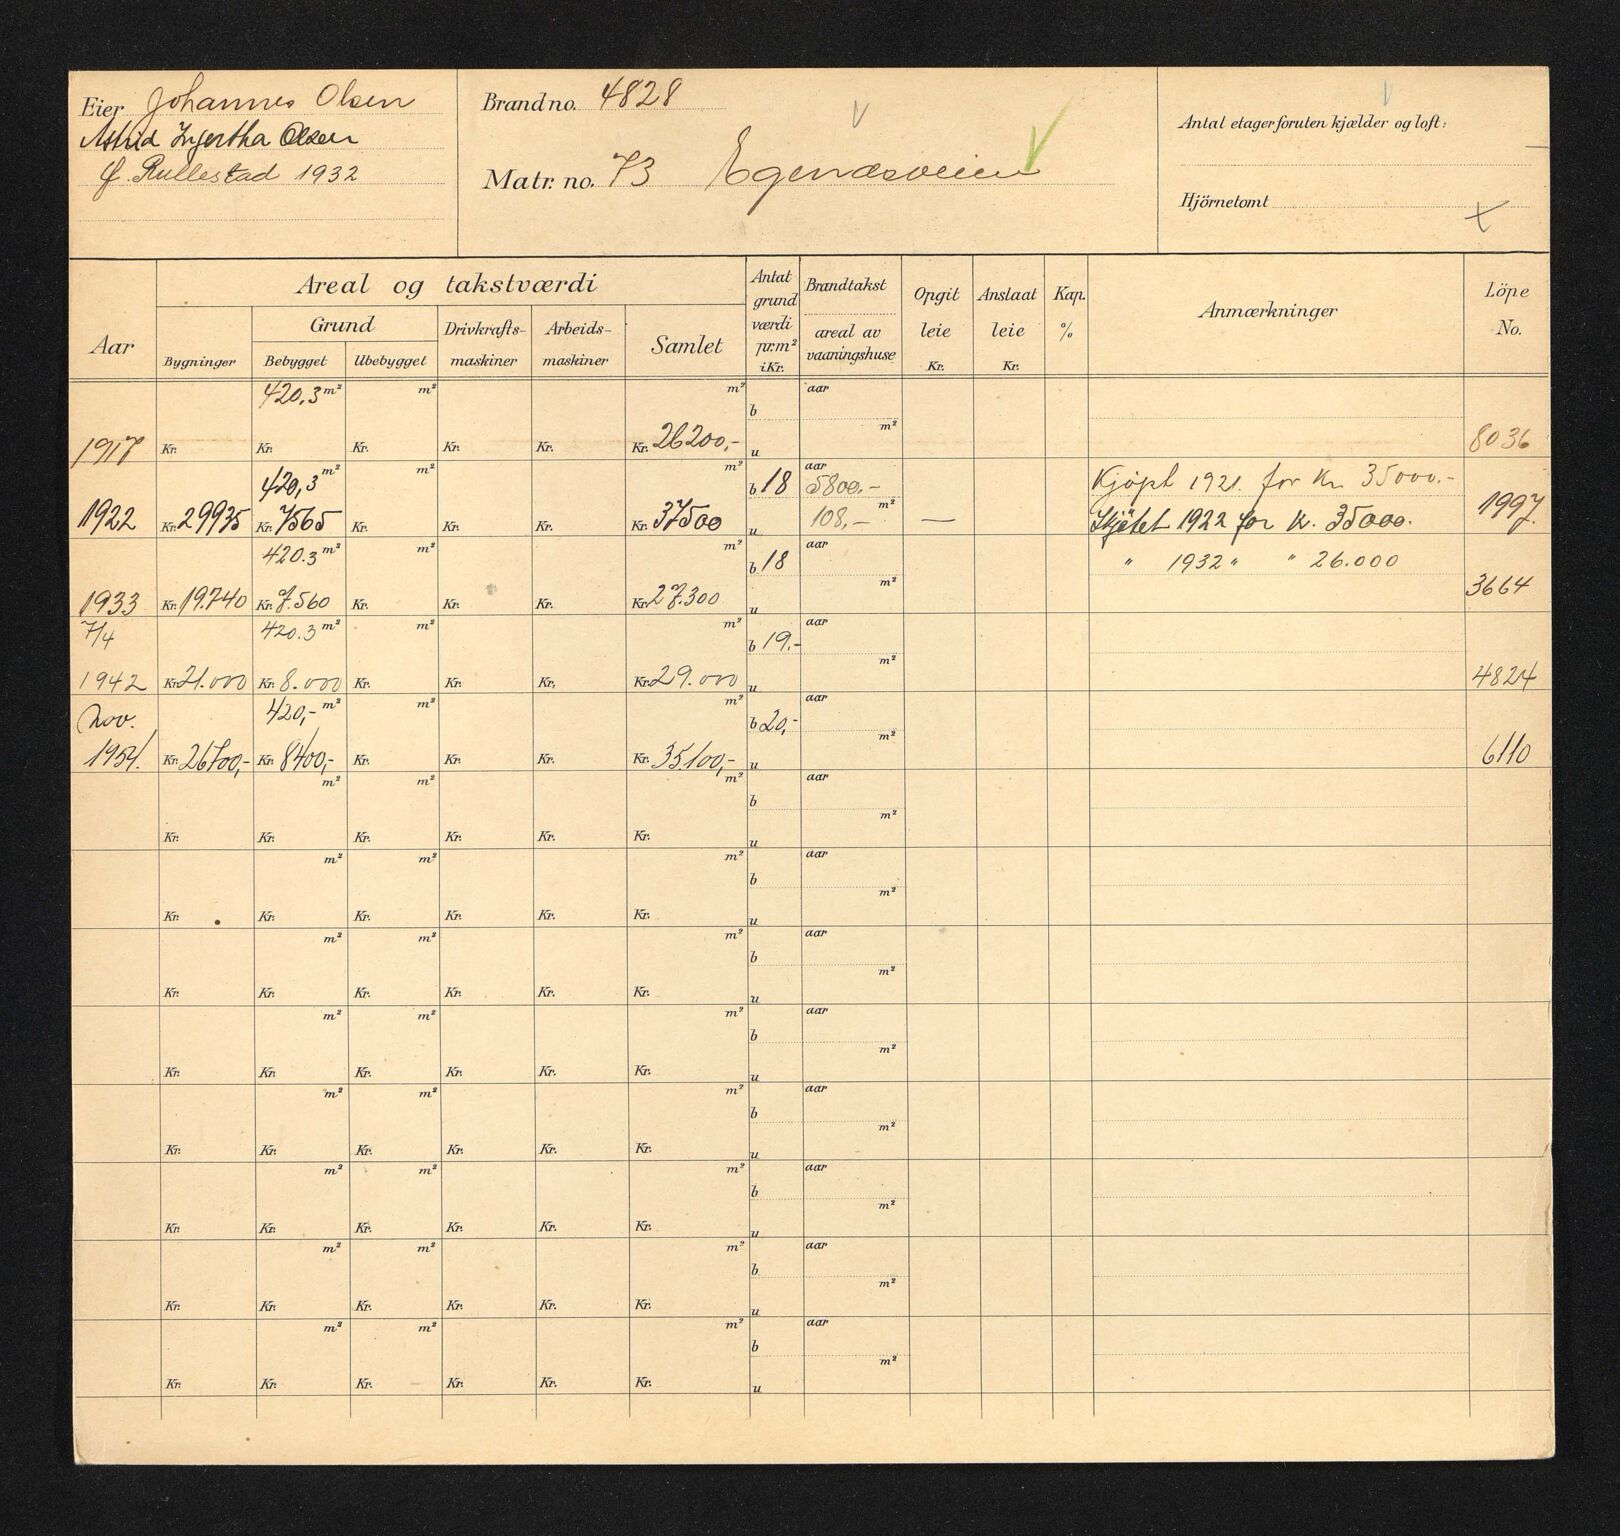 Eier Johannes Olsen
Astrid Injertha Olsen
f. Rullestad 1932
Brandno. 4828
Matr. no. 73 Egenæsveien
Antal etager foruten kjælder og loft:
Hjörnetomt x
Aar
Areal og takstværdi
Grund
Bygninger Bebygget Ubebygget
Drivkrafts-maskiner
Arbeids-maskiner
Samlet
Antat grund værdi pr. m² i Kr.
Brandtakst
areal av vaaningshuse
Opgit leie Kr.
Anslaat leie Kr.
Kap. %
Anmærkninger
Löpe No.
420.3 m² m² m² aar
b
m²
1917 Kr. Kr. Kr. Kr. Kr. Kr. 26200,- u 8036
420,3 m² m² m² b 18 aar 5800.- Kjöpt 1921. for Kr. 35000.-
1922 Kr. 29935 Kr. 7565 Kr. Kr. Kr. Kr. 37500 u 108,- m² — Skjötet 1922 for K. 35000. 1997.
420.3 m² m² m² b 18 aar " 1932 " " 26.000
m²
1933 Kr. 19.740 Kr. 7.560 Kr. Kr. Kr. Kr. 27.300 u 3664
7/4 420.3 m² m² m² b 19.- aar
m²
1942 Kr. 21.000 Kr. 8.000 Kr. Kr. Kr. Kr. 29.000 u 4824
Nov. 420,- m² m² m² b 20,- aar
m²
1954. Kr. 26700,- Kr. 8400,- Kr. Kr. Kr. Kr. 35.100,- u 6110
m² m² m² aar
b
m²
Kr. Kr. Kr. Kr. Kr. Kr. u
m² m² m² aar
b
m²
Kr. Kr. Kr. Kr. Kr. Kr. u
m² m² m² aar
b
m²
Kr. Kr. Kr. Kr. Kr. Kr. u
m² m² m² aar
b
m²
Kr. Kr. Kr. Kr. Kr. Kr. u
m² m² m² aar
b
m²
Kr. Kr. Kr. Kr. Kr. Kr. u
m² m² m² aar
b
m²
Kr. Kr. Kr. Kr. Kr. Kr. u
m² m² m² aar
b
m²
Kr. Kr. Kr. Kr. Kr. Kr. u
m² m² m² aar
b
m²
Kr. Kr. Kr. Kr. Kr. Kr. u